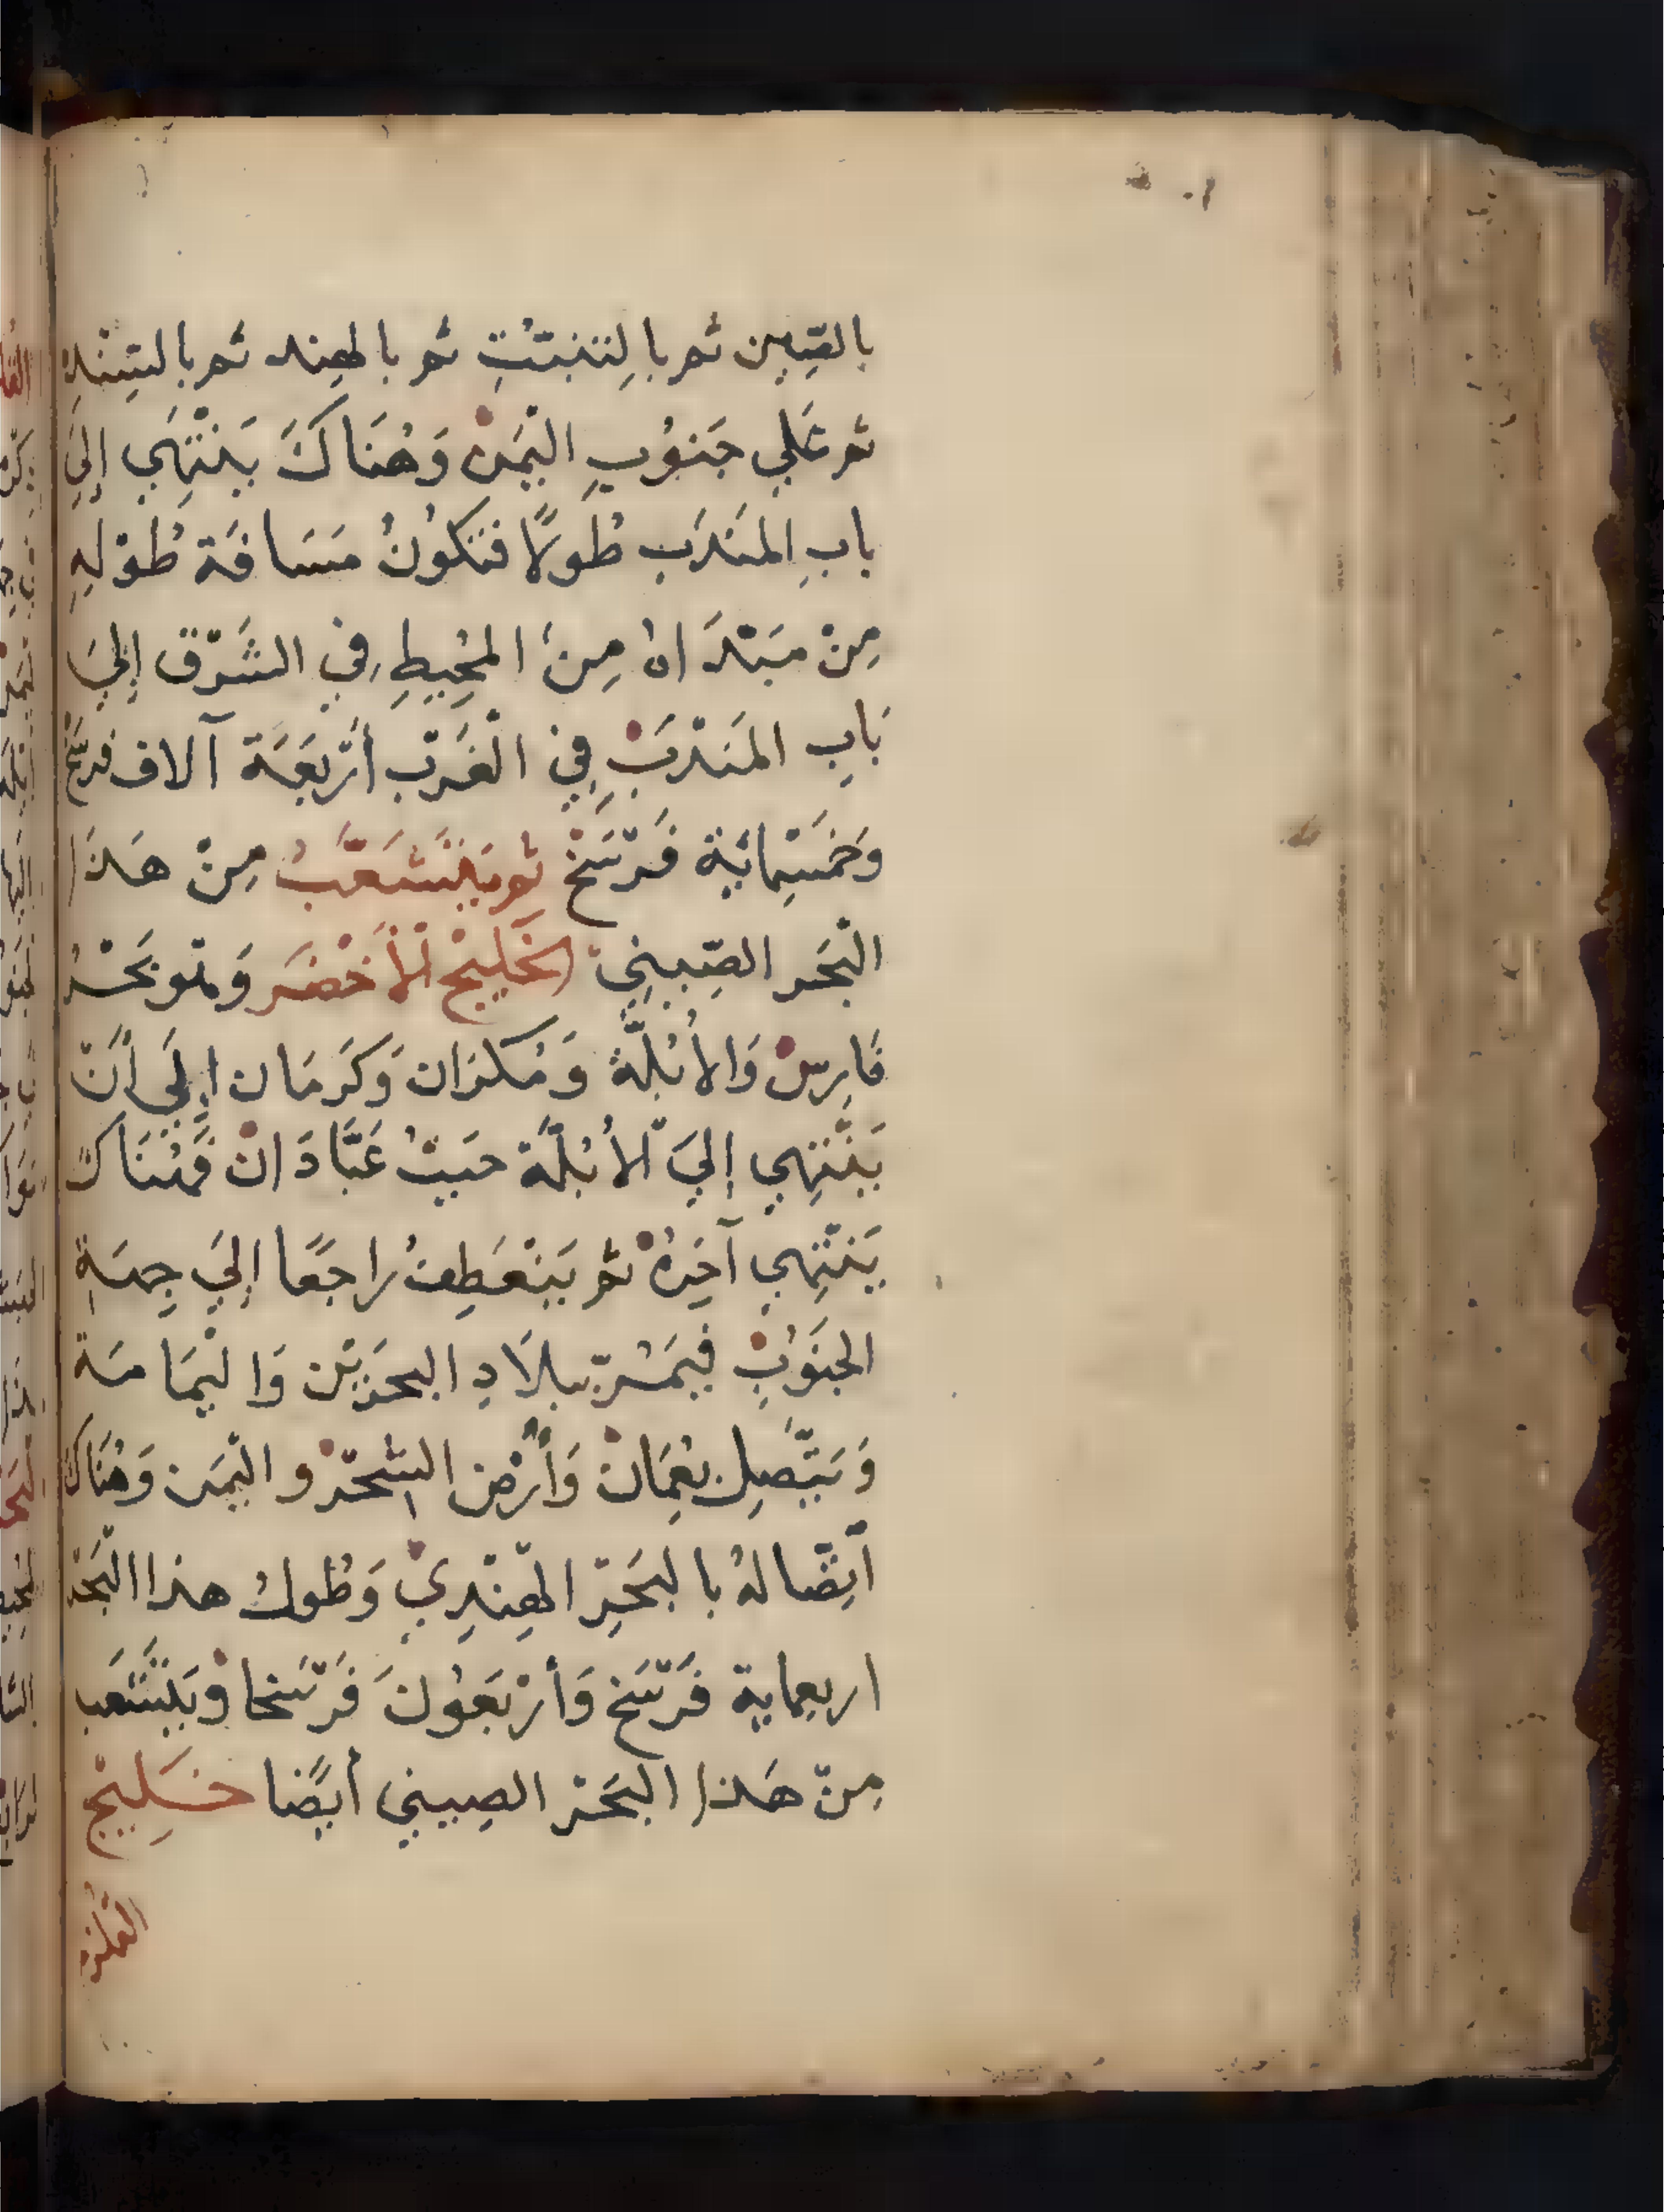 بالصِّين ثم بالتنبتت ثم بالهند ثم بالسِّنْدِ
ثم عَلي جَنوُبِ اليَمنْ وَهُنَاكَ يَنْتَهَي إلَي
بابِ المَندَب طُولًا فتكوُنُ مَسَافَة طُوْلهِ
مِنْ مبَتدَاهُ مِنَ المُحِيطِ في الشَرْق إلَيَ
بَابِ المَندَبْ فِي الْغَرْب أرْبَعَة آلاف فرسَخْ
وَخمَسِمائية فَرْسَخْ ثم يَنْشَعَّبُ مِنْ هَذَا
الْبَحَر الصِّينِي الخَليِجْ الْأَخْضَر وَهو بَحْرُ
فَارِسْ وَالأُبُلَّة وَمُكرَان وَكَرمَان إلَي أنْ
يَنْتَهِي إلَيَ الأُبُلَّة حَيثُ عَبَّادَانْ فَهُنَاكَ
يَنْتَهِي آخَرهُ ثم يَنْعَطِفُ راجعًا إلَيَ جِهَةِ
الجنَوُبْ فيَمُرّ ببلَادِ البحرَيْن وَاليْمَامَة
وَيَتَّصِل بعُمَانْ وَأرْض الشِحْرْ و اليْمَن وَهُنَاكَ
أتِصَّالهُ بالبَحَرِ الهِنْدِيْ وَطُولُ هذا الْبَحْر
اربعماية فَرْسَخ وَأرْبَعوُنَ فَرْسَخا وْيَنَشَعب
مِنْ هَذا البَحَرْ الصِيني أيضًا خَلِيجْ
القلزم